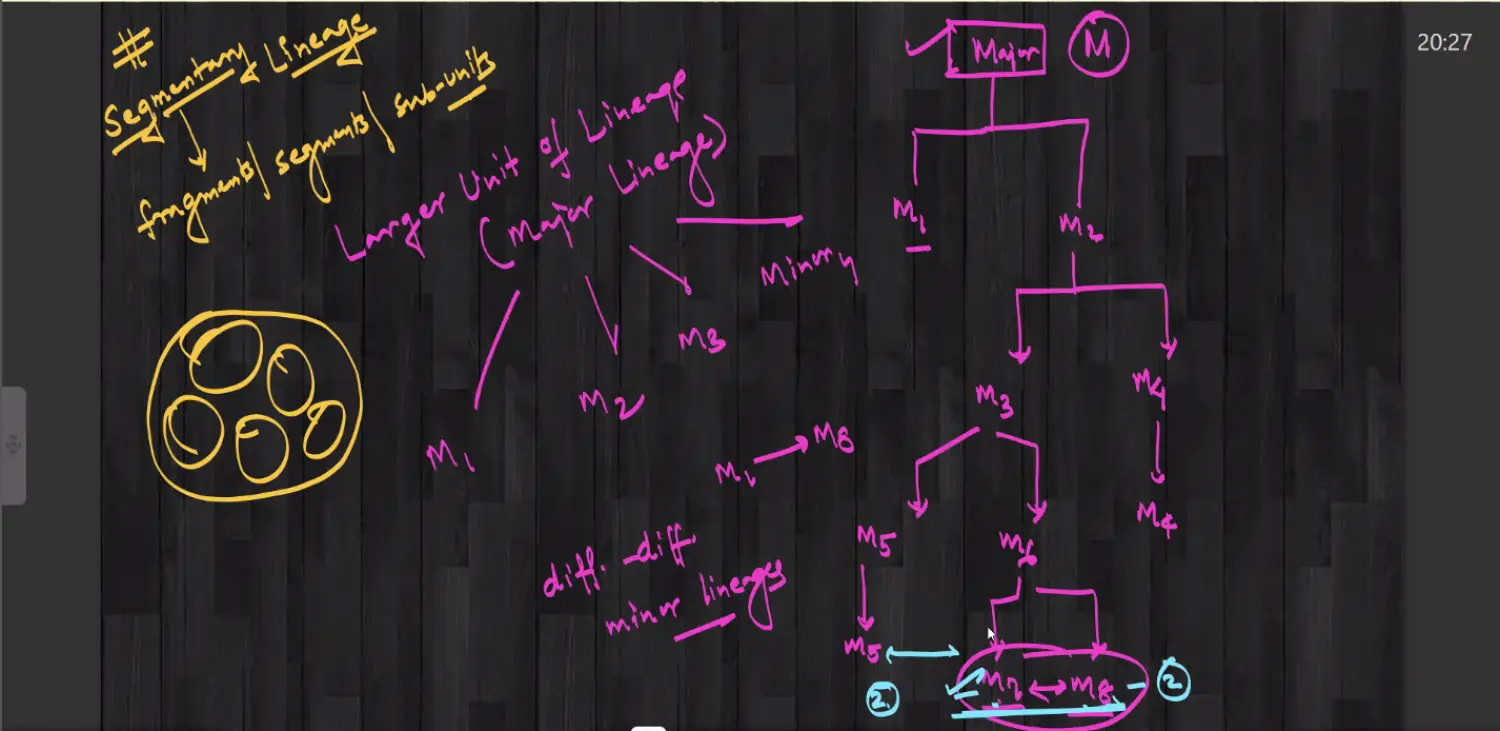 #
Segmentary Lineage
fragments/ segments/ sub-units
Larger Unit of Lineage
(Major Lineage)
M1
M2
M3
M1 → M8
diff. -diff.
minor lineages
Major M
M1 M2
M3 M4
M5 M6 M4
M5 M7 M8
2. 2
20:27